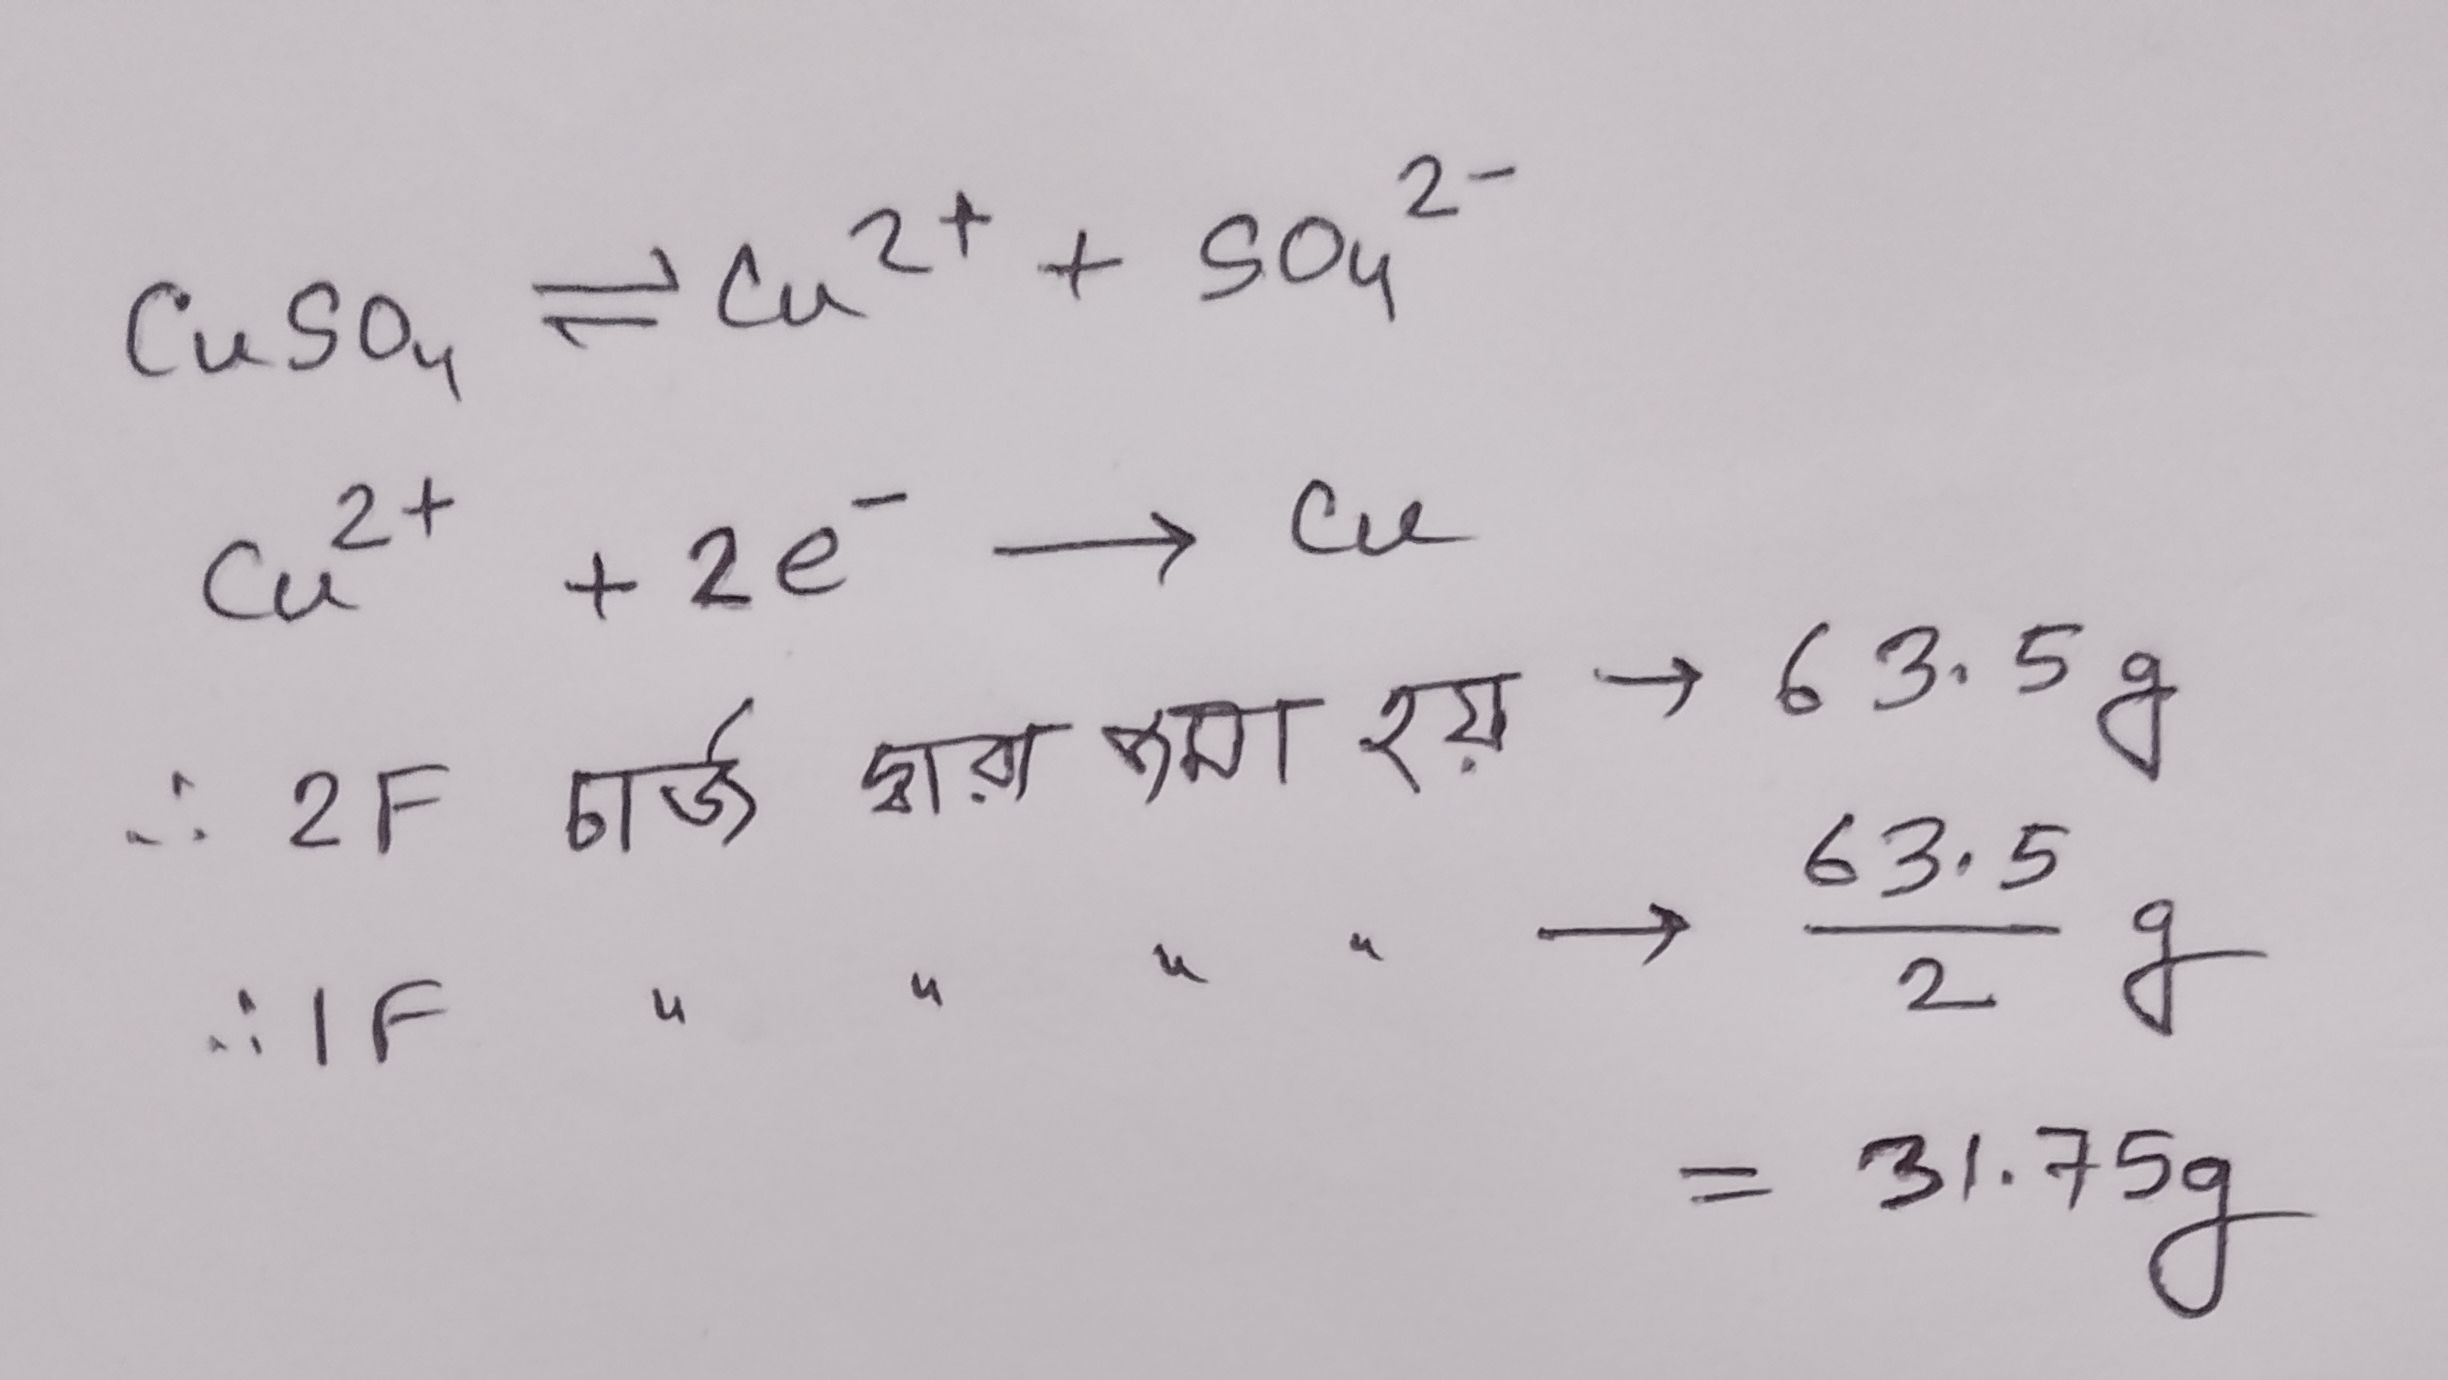 CuSO₄ ⇌ Cu²⁺ + SO₄²⁻
Cu²⁺ + 2e⁻ → Cu
∴ 2F চার্জ দ্বারা জমা হয় → 63.5g
∴ 1F " " " " → 63.5/2 g
= 31.75g